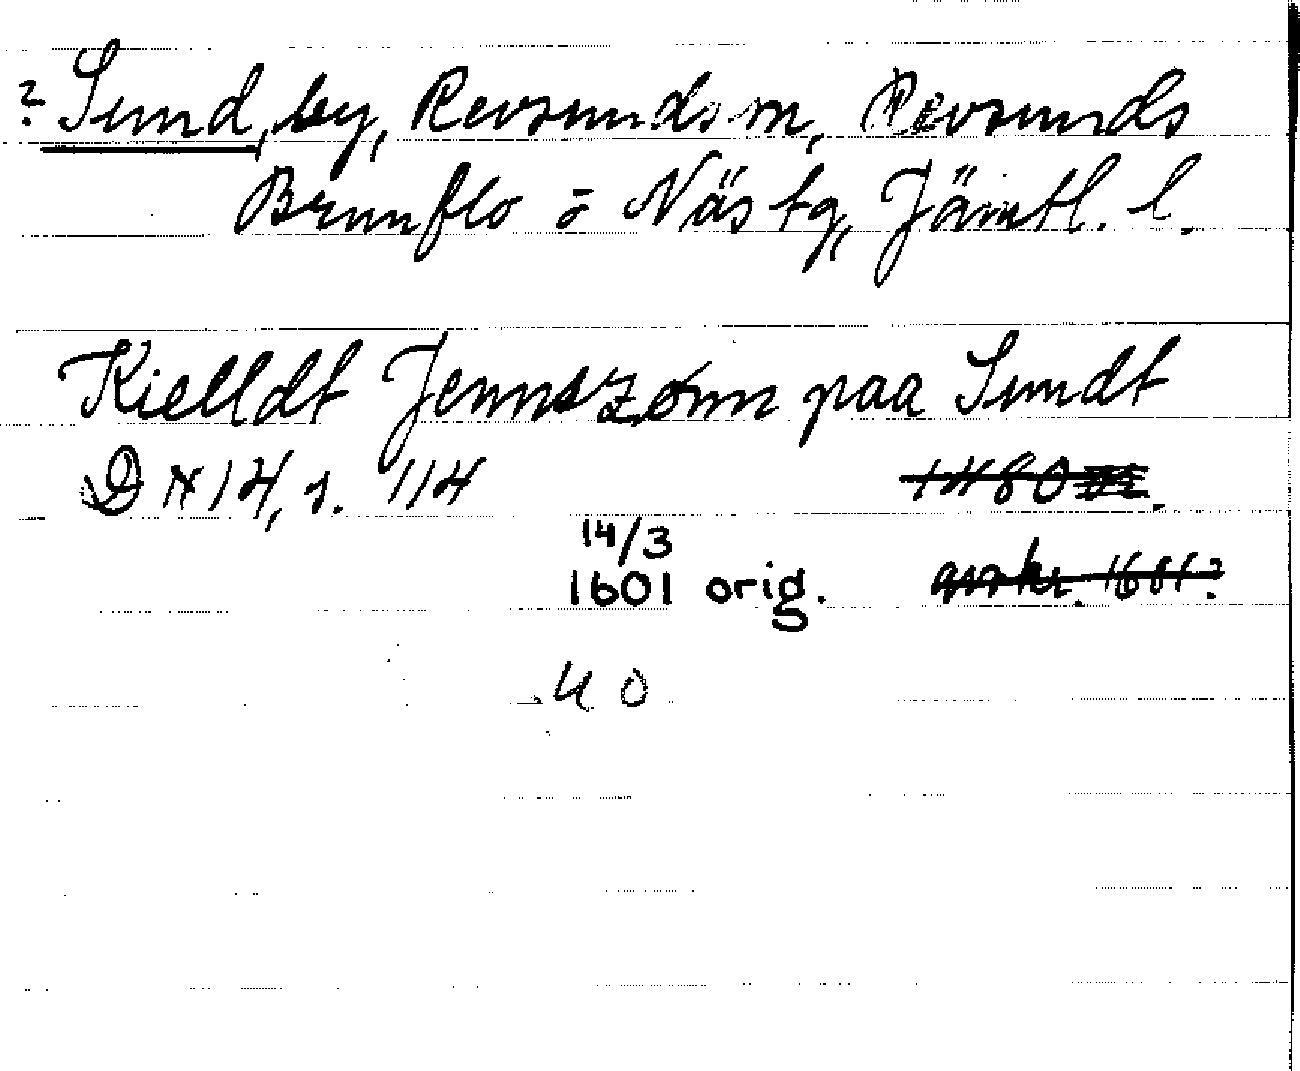 ? Sund, by, Revsunds sn, Revsunds
Brunflo o Näs tg, Jämtl. l.
Kielldt Jennszønn paa Sundt
D N 14, s. 114 1480
14/3
1601 orig. avskr. 1601?
40